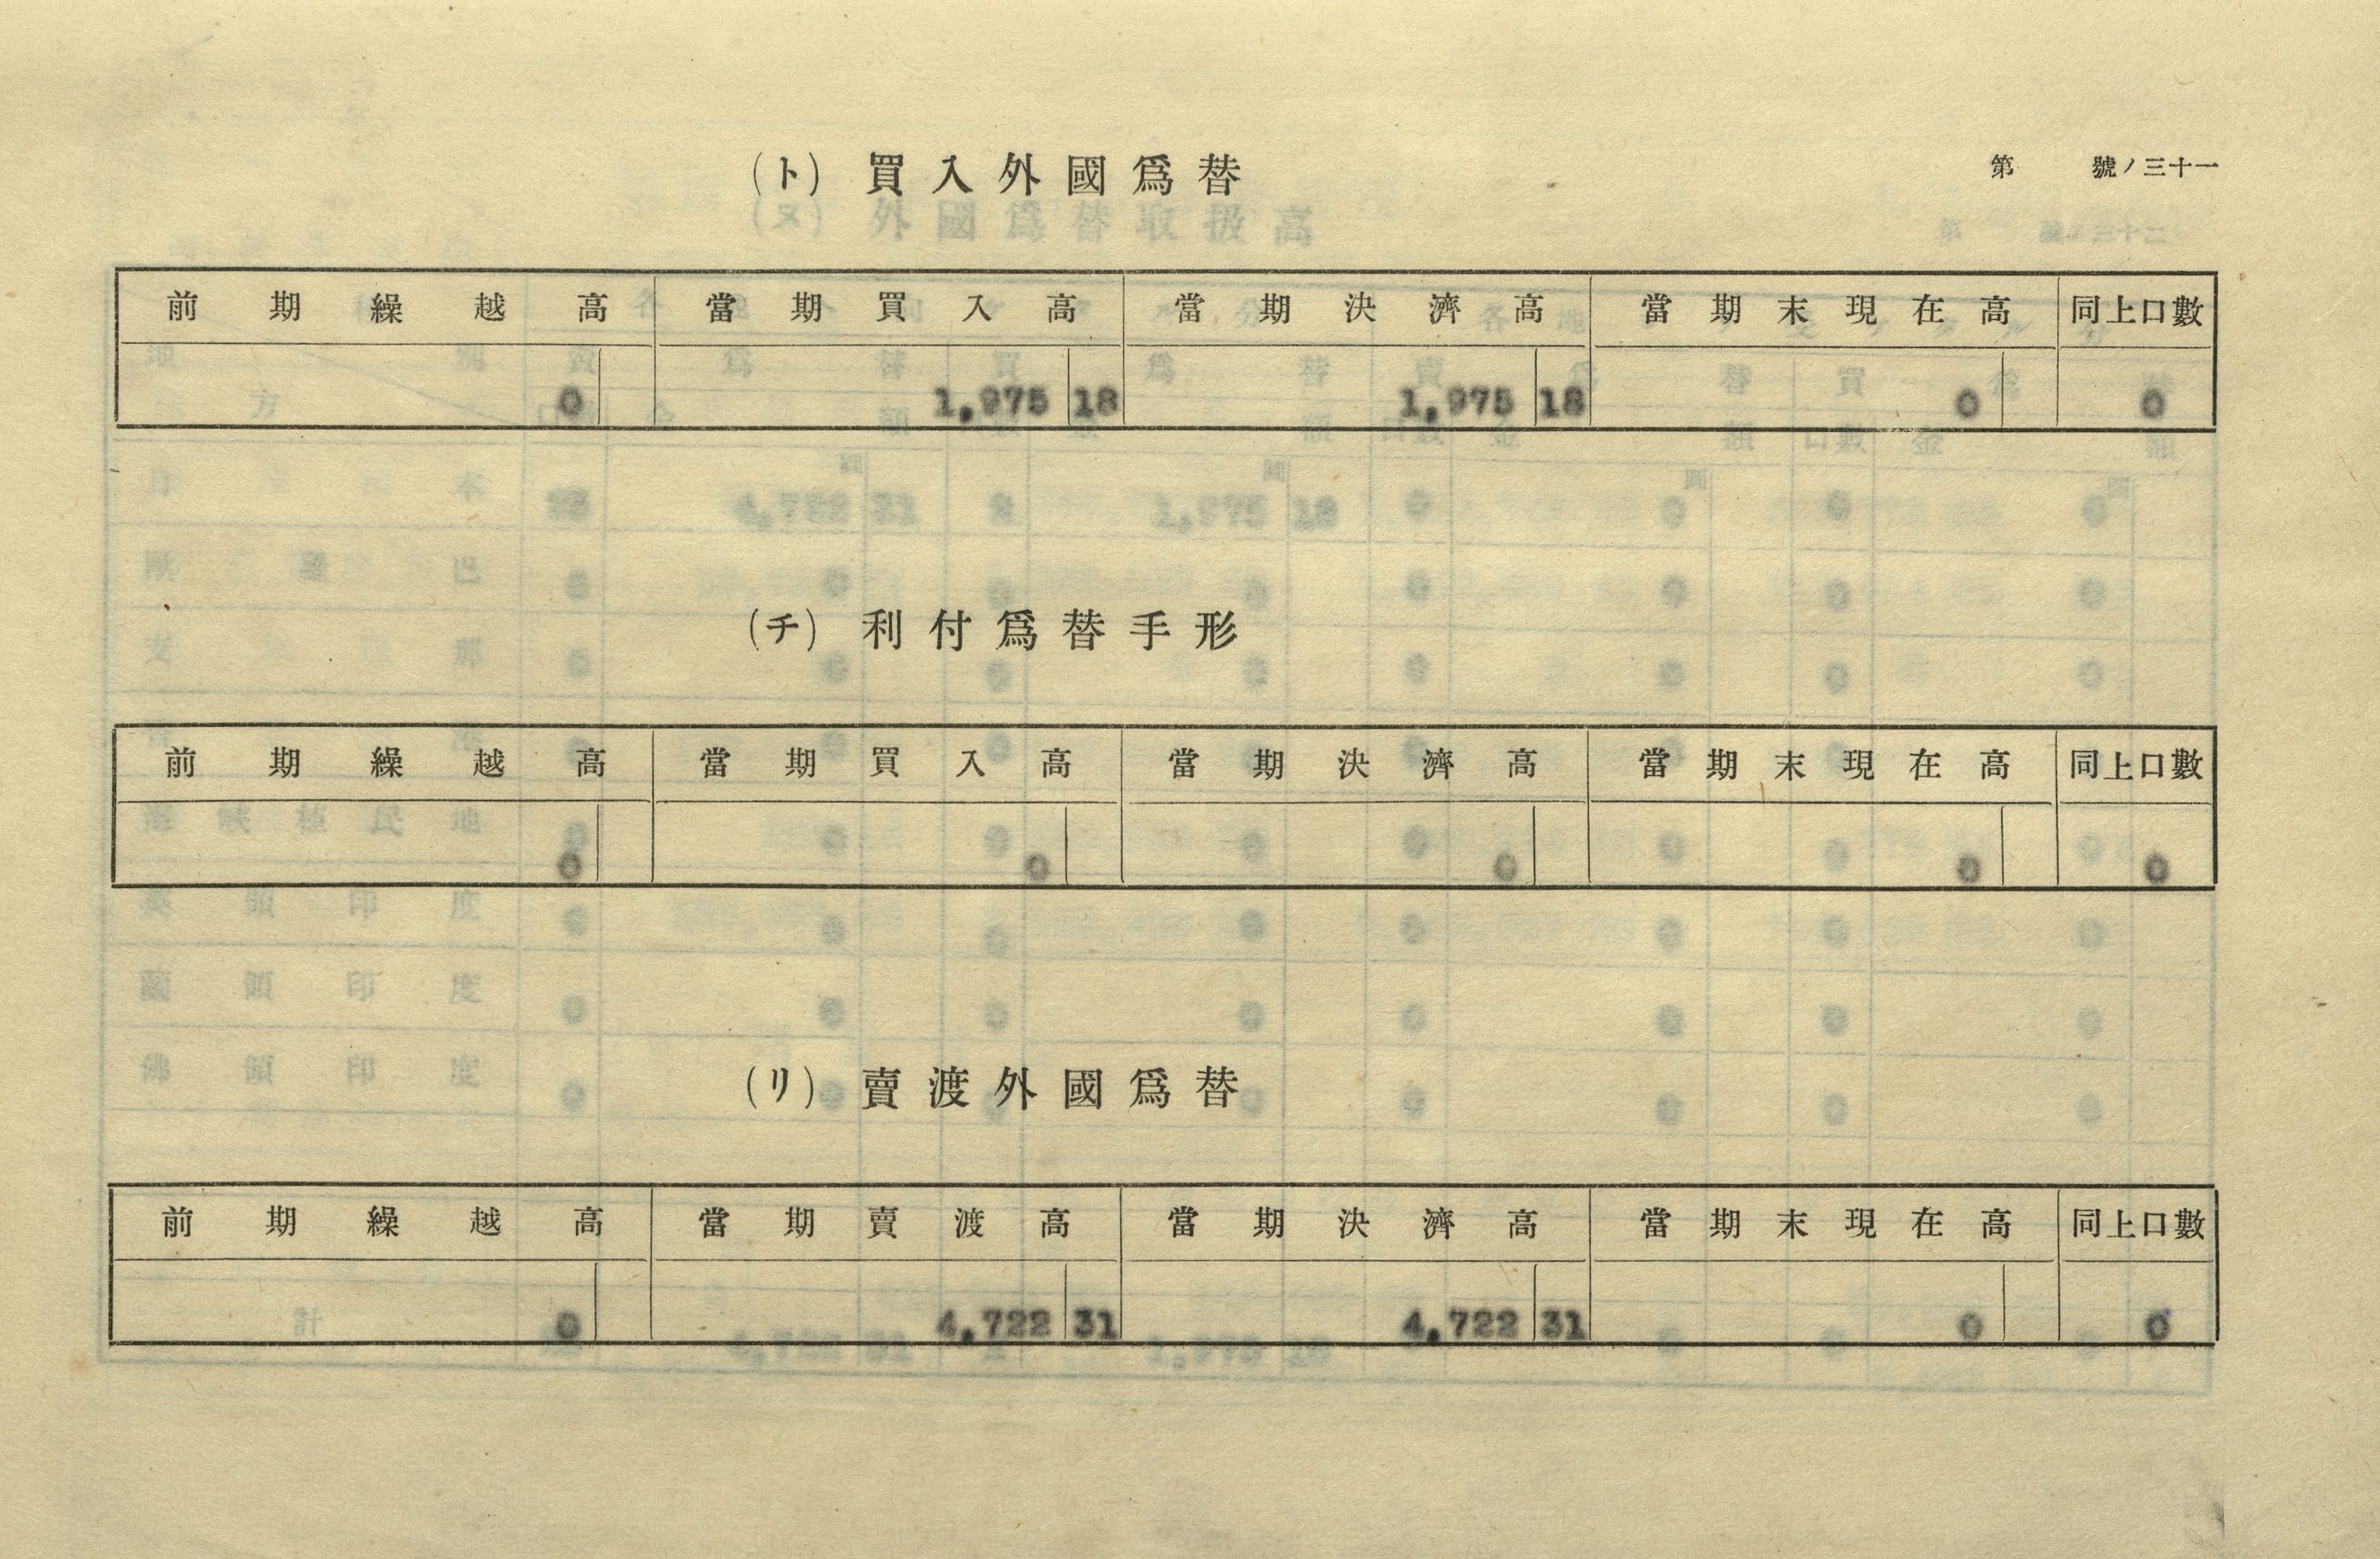 第 號ノ三十一
(ト) 買入外國爲替
前期繰越高 當期買入高 當期決濟高 當期末現在高 同上口數
0 1,975 18 1,975 18 0 0
(チ) 利付爲替手形
前期繰越高 當期買入高 當期決濟高 當期末現在高 同上口數
0 0 0 0 0
(リ) 賣渡外國爲替
前期繰越高 當期賣渡高 當期決濟高 當期末現在高 同上口數
0 4,722 31 4,722 31 0 0